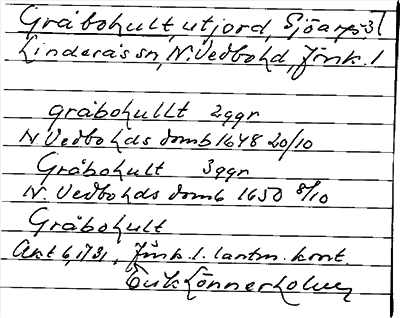 Gråbohult, utjord, Sjöarp 3/1
Linderås sn, N. Vedbo hd, Jönk. l
gråbohullt 2ggr
N Vedbo hds domb 1648 20/10
Gråbohult 3ggr
N. Vedbo hds domb 1650 8/10
Gråbohult
Akt 6, 1731, Jönk. l. lantm. kont.
Erik Lönnerholm